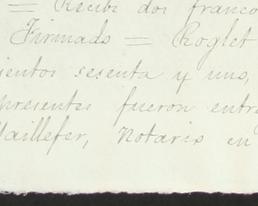 = Recibi dos franco
Firmado = Roglet
ientos sesenta y uno,
presentes fueron entre
Vaillefer, Notario en